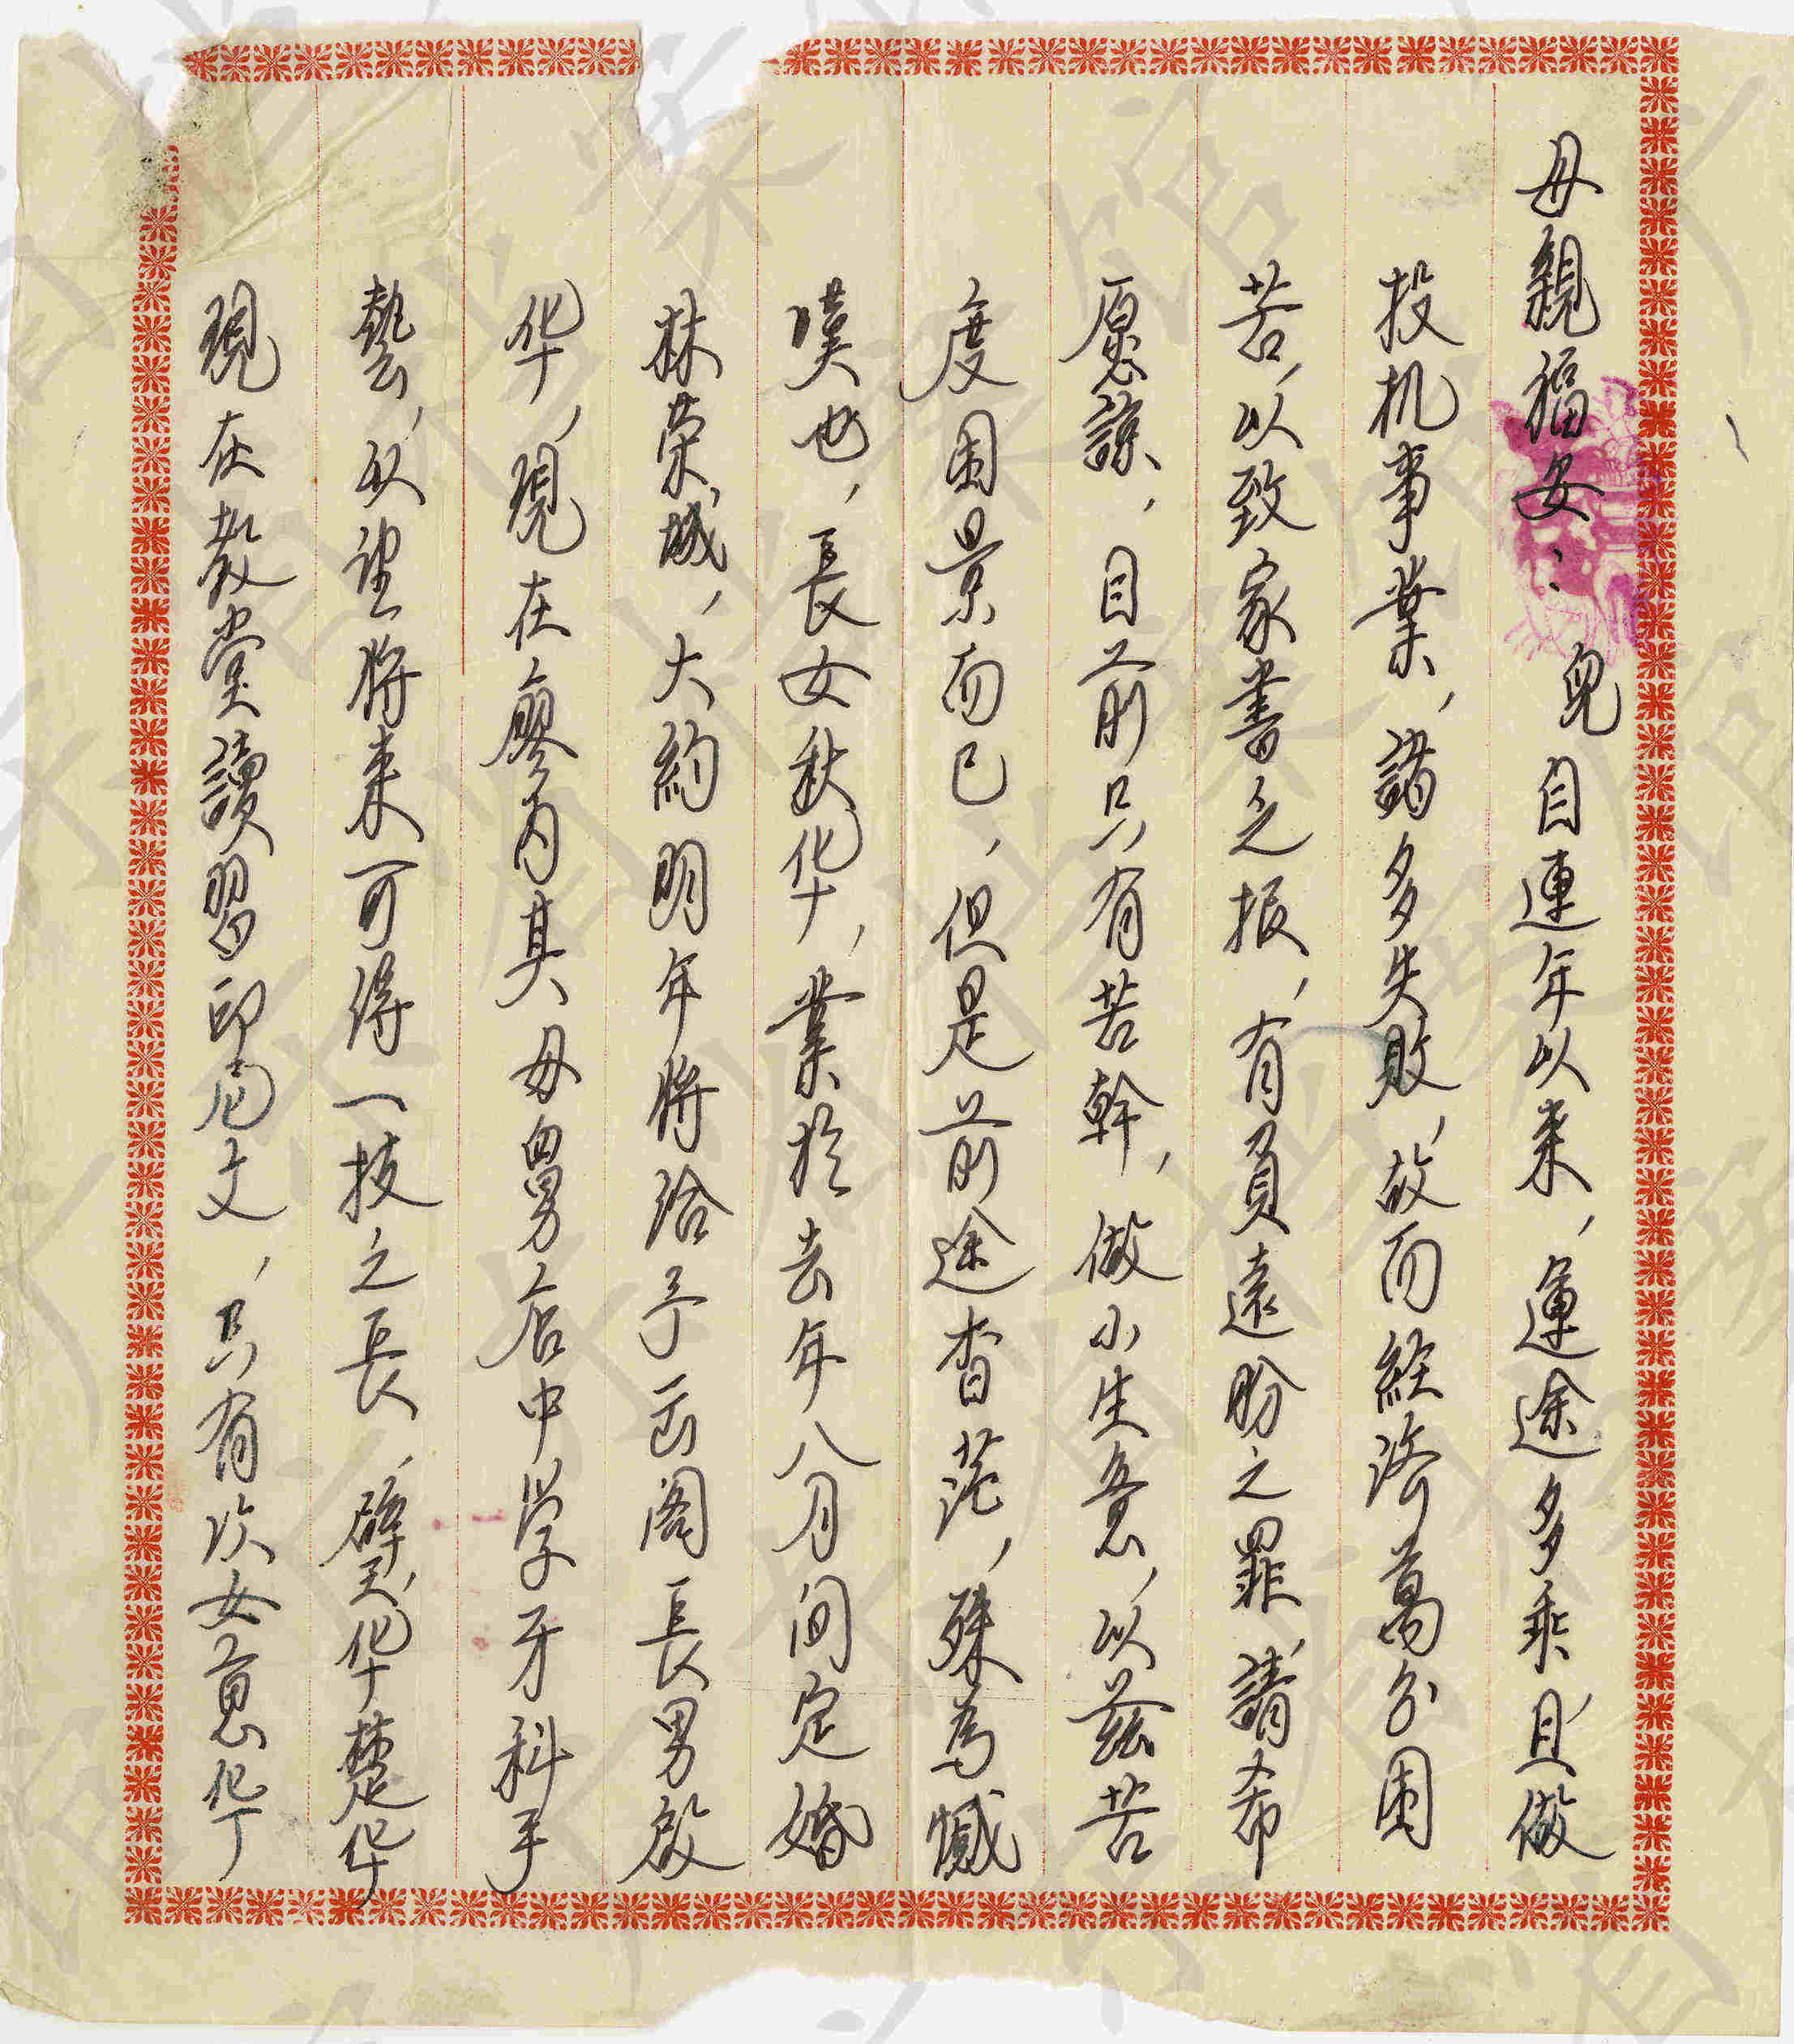 母親福安：兒自連年以来，運途多乖且做
投机事業，諸多失敗，故而經济萬分困
苦，以致家書乏报，有負遠盼之罪，請希
愿諒，目前只有苦幹，做小生意，以兹苦
度困景而已，但是前途杳茫，殊為憾
嘆也，長女秋华，業於去年八月间定婚
林荣城，大約明年将給予出阁長男啟
华，現在廖内其母舅店中学牙科手
藝，以望将来可得一技之長，璧华楚华
現在教堂讀習印尼文，只有次女蕙华